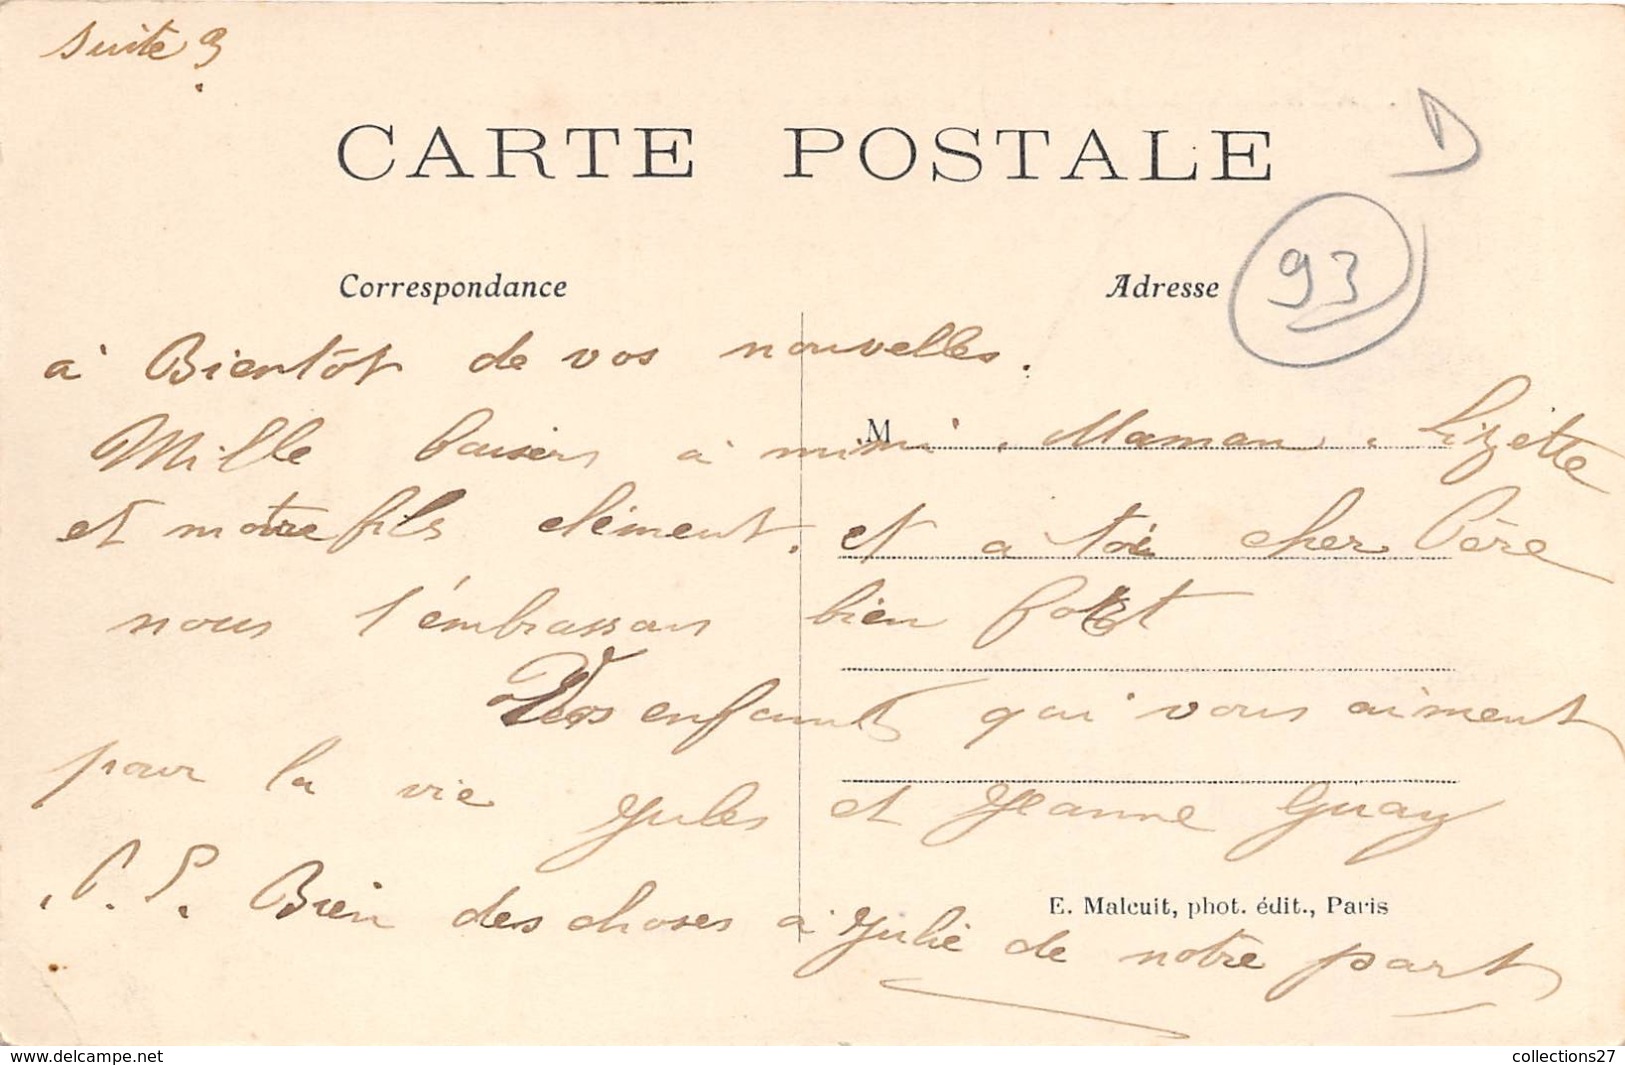 suite 3
CARTE POSTALE
93
Correspondance
Adresse
à Bientôt de vos nouvelles.
M
Mille baisers à mimi, Maman, Lizette
et notre fils clément. et a toi cher Père
nous t'embrassons bien fort
Vos enfants qui vous aiment
pour la vie Jules et Jeanne Guay
P. S. Bien des choses à Julie de notre part
E. Malcuit, phot. édit., Paris
www.delcampe.net
collections27